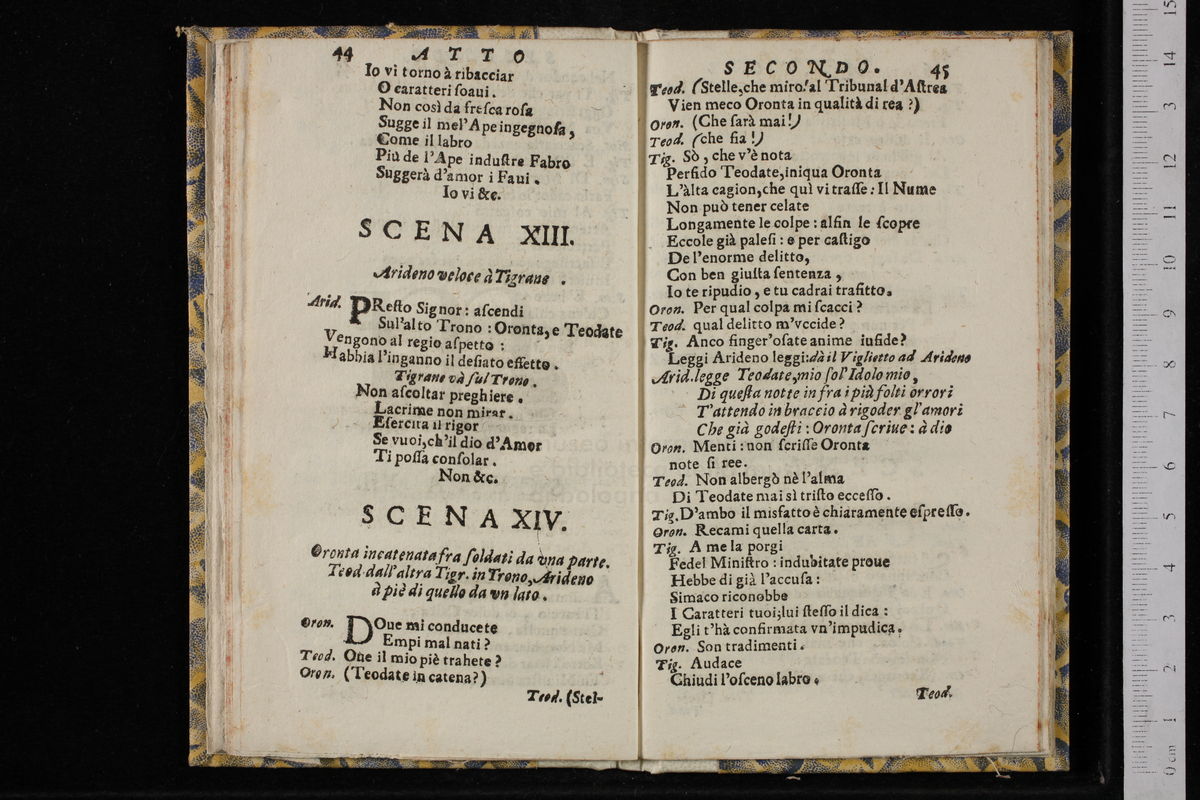 44 ATTO
Io vi torno à ribacciar
O caratteri ſoaui.
Non così da freſca roſa
Sugge il mel' Ape ingegnoſa,
Come il labro
Più de l'Ape induſtre Fabro
Suggerà d'amor i Faui.
Io vi &c.
SCENA XIII.
Arideno veloce à Tigrane.
Arid. PReſto Signor: aſcendi
Sul'alto Trono: Oronta, e Teodate
Vengono al regio aſpetto:
Habbia l'inganno il deſiato effetto.
Tigrane và ſul Trono.
Non aſcoltar preghiere.
Lacrime non mirar.
Eſercita il rigor
Se vuoi, ch'il dio d'Amor
Ti poſſa conſolar.
Non &c.
SCENA XIV.
Oronta incatenata fra ſoldati da vna parte.
Teod dall'altra Tigr. in Trono, Arideno
à piè di quello da vn lato.
Oron. DOue mi conducete
Empi mal nati?
Teod. Oue il mio piè trahete?
Oron. (Teodate in catena?)
Teod. (Stel-
SECONDO. 45
Teod. (Stelle, che miro! al Tribunal d'Aſtrea
Vien meco Oronta in qualità di rea?)
Oron. (Che ſarà mai!)
Teod. (che fia!)
Tig. Sò, che v'è nota
Perfido Teodate, iniqua Oronta
L'àlta cagion, che quì vi traſſe: Il Nume
Non può tener celate
Longamente le colpe: alfin le ſcopre
Eccole già paleſi: e per caſtigo
De l'enorme delitto,
Con ben giuſta ſentenza,
Io te ripudio, e tu cadrai trafitto.
Oron. Per qual colpa mi ſcacci?
Teod. qual delitto m'vccide?
Tig. Anco finger'oſate anime infide?
Leggi Arideno leggi: dà il Viglietto ad Arideno
Arid. legge Teodate, mio ſol' Idolo mio,
Di queſta notte in fra i più folti orrori
T'attendo in braccio à rigoder gl'amori
Che già godeſti: Oronta ſcriue: à dio
Oron. Menti: non ſcriſſe Oronta
note ſi ree.
Teod. Non albergò nè l'alma
Di Teodate mai sì triſto ecceſſo.
Tig. D'ambo il misfatto è chiaramente eſpreſſo.
Oron. Recami quella carta.
Tig. A me la porgi
Fedel Miniſtro: indubitate proue
Hebbe di già l'accuſa:
Simaco riconobbe
I Caratteri tuoi; lui ſteſſo il dica:
Egli t'hà confirmata vn'impudica.
Oron. Son tradimenti.
Tig. Audace
Chiudi l'oſceno labro.
Teod.